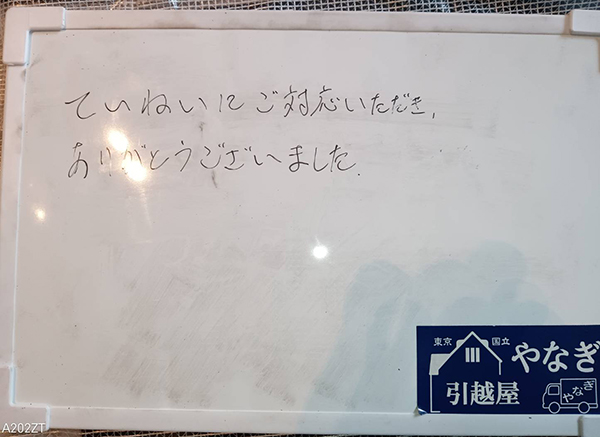 ていねいにご対応いただき,
ありがとうございました.
東京 国立
やなぎ
引越屋
やなぎ
A202ZT